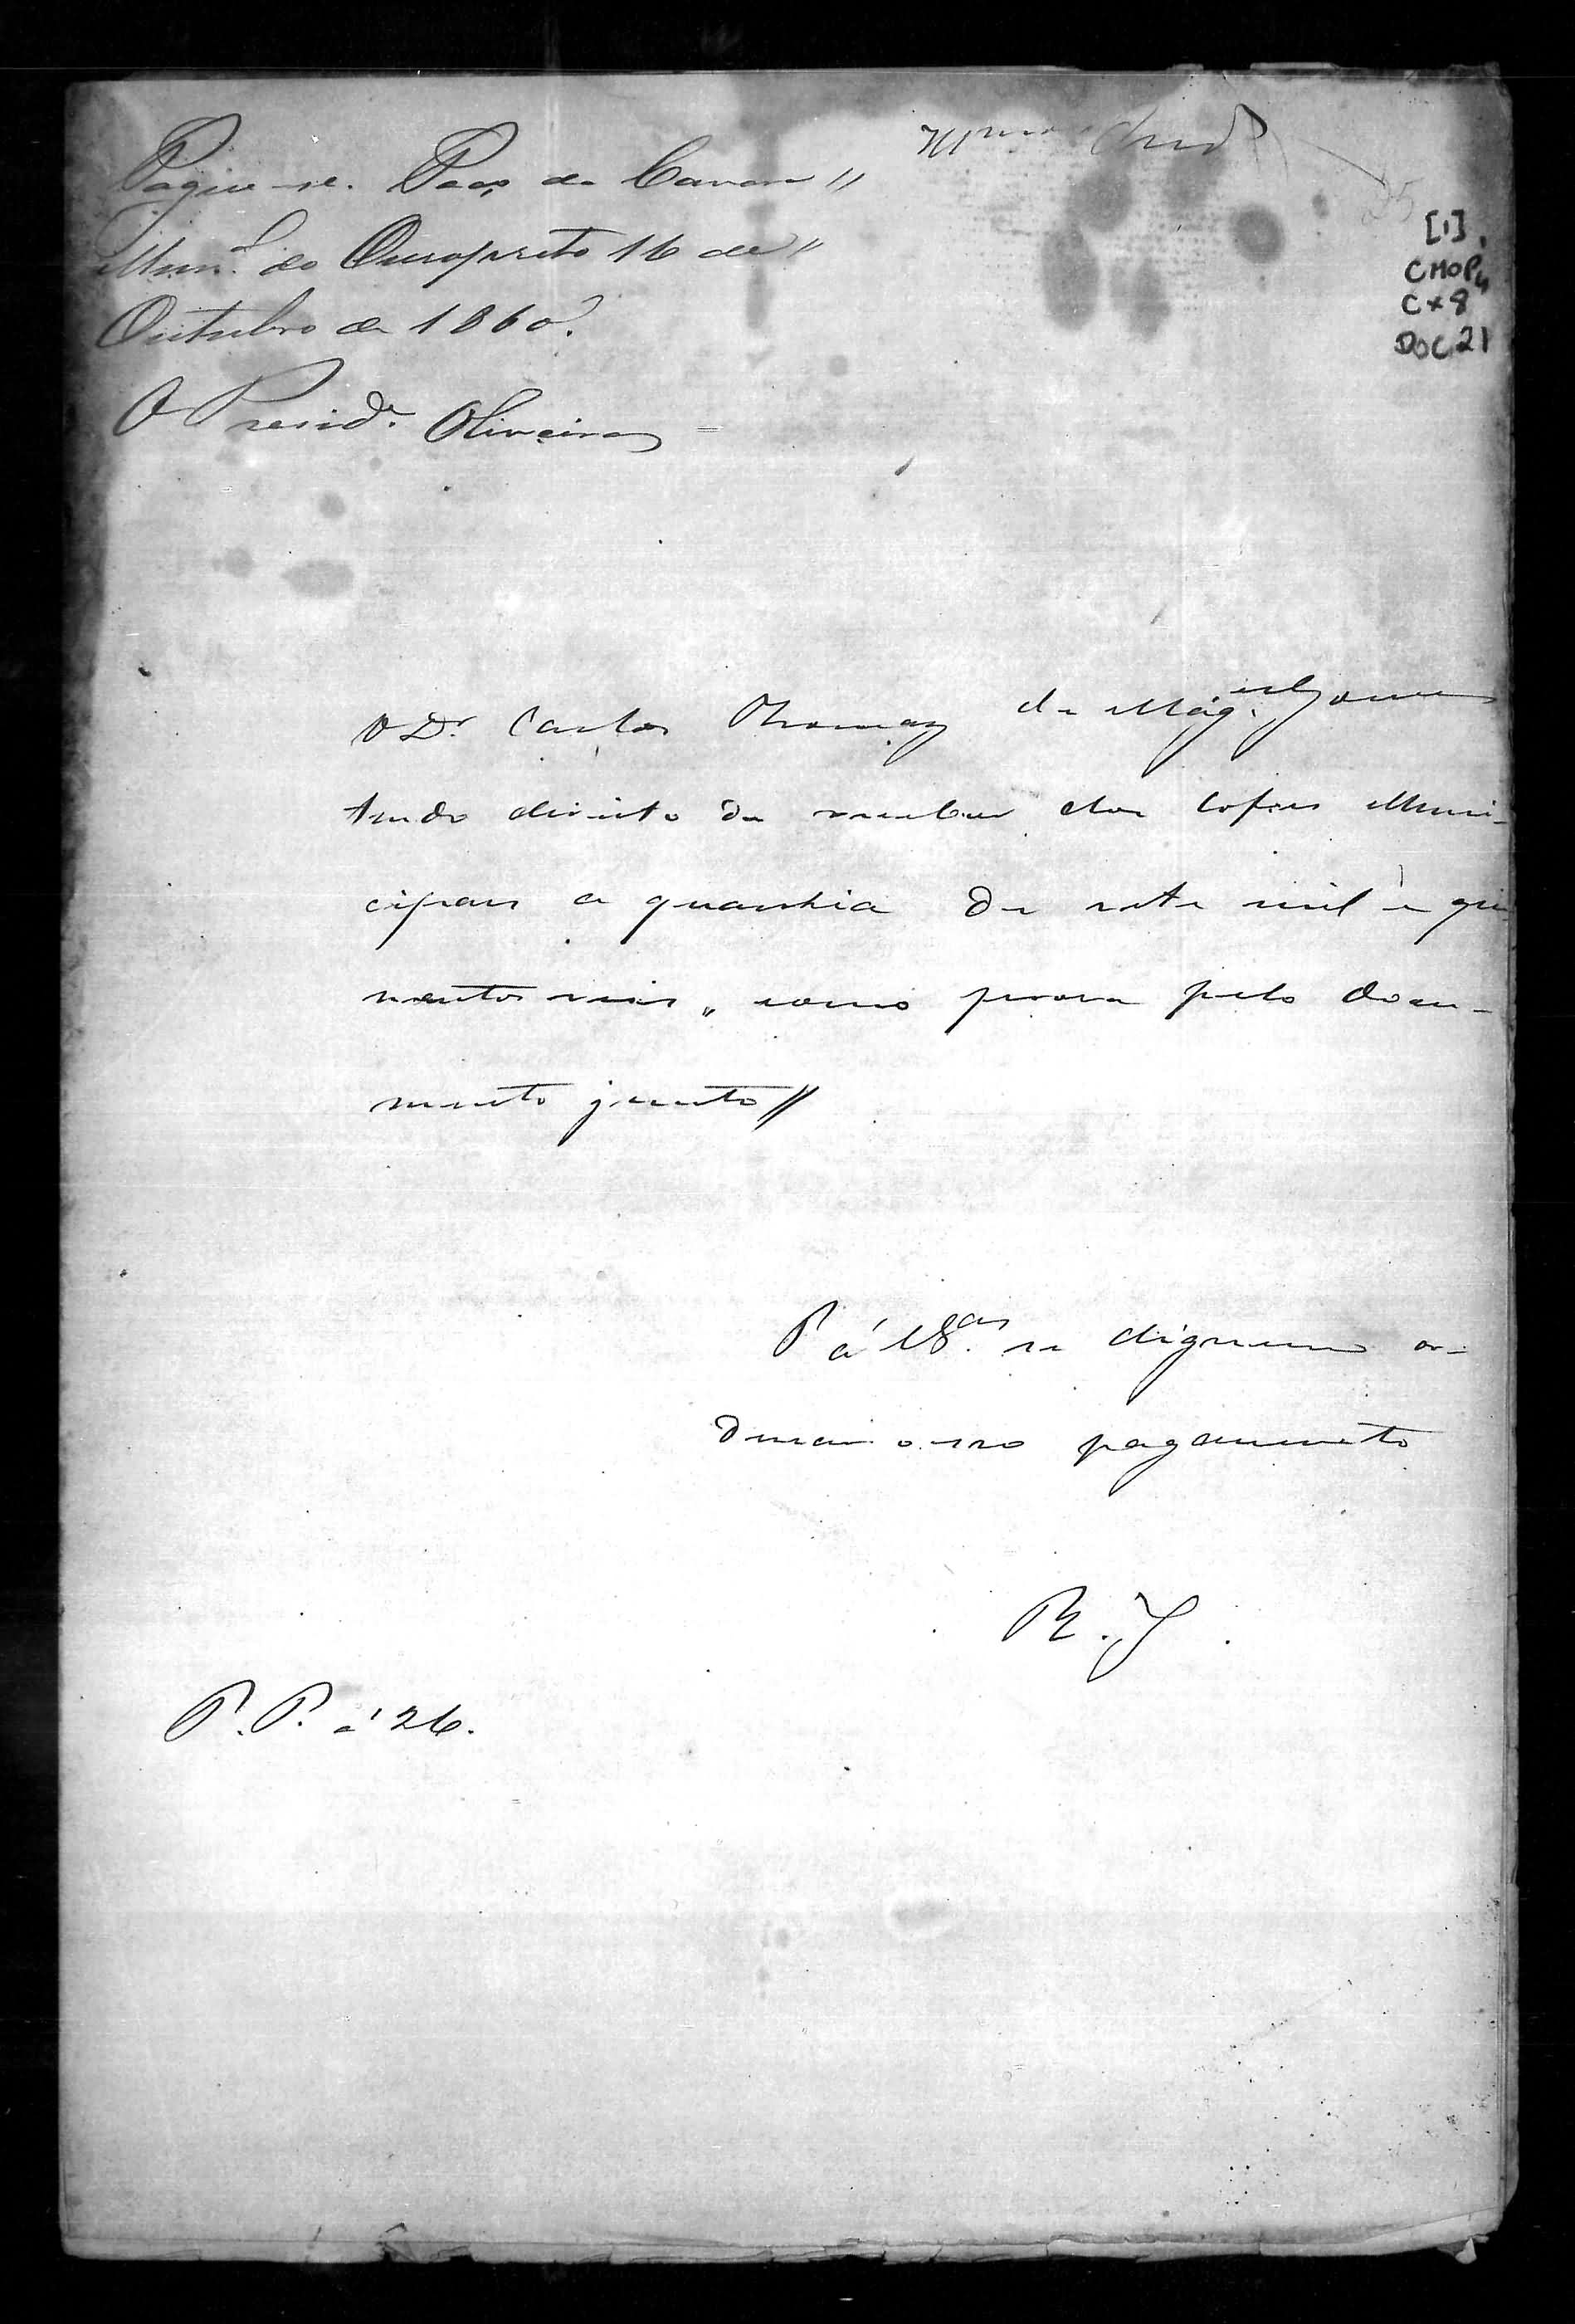 Pague-se. Paço da Camara //
Mun.al do Ouropreto 16 de //
Outubro de 1860.
O Presid.e Oliveira
Ill.mos
[1]
CMOP
Cx 8
DOC 21
O Dr. Carlos Thomaz de Mag.es Gomes
tendo direito de receber dos Cofres Muni-
cipaes a quanthia de sete mil e qui
nhentos reis, como prova pelo docu-
mento junto //
P á VS.as se dignem or-
denar o seo pagamento
R. J.
P. P. á 26.